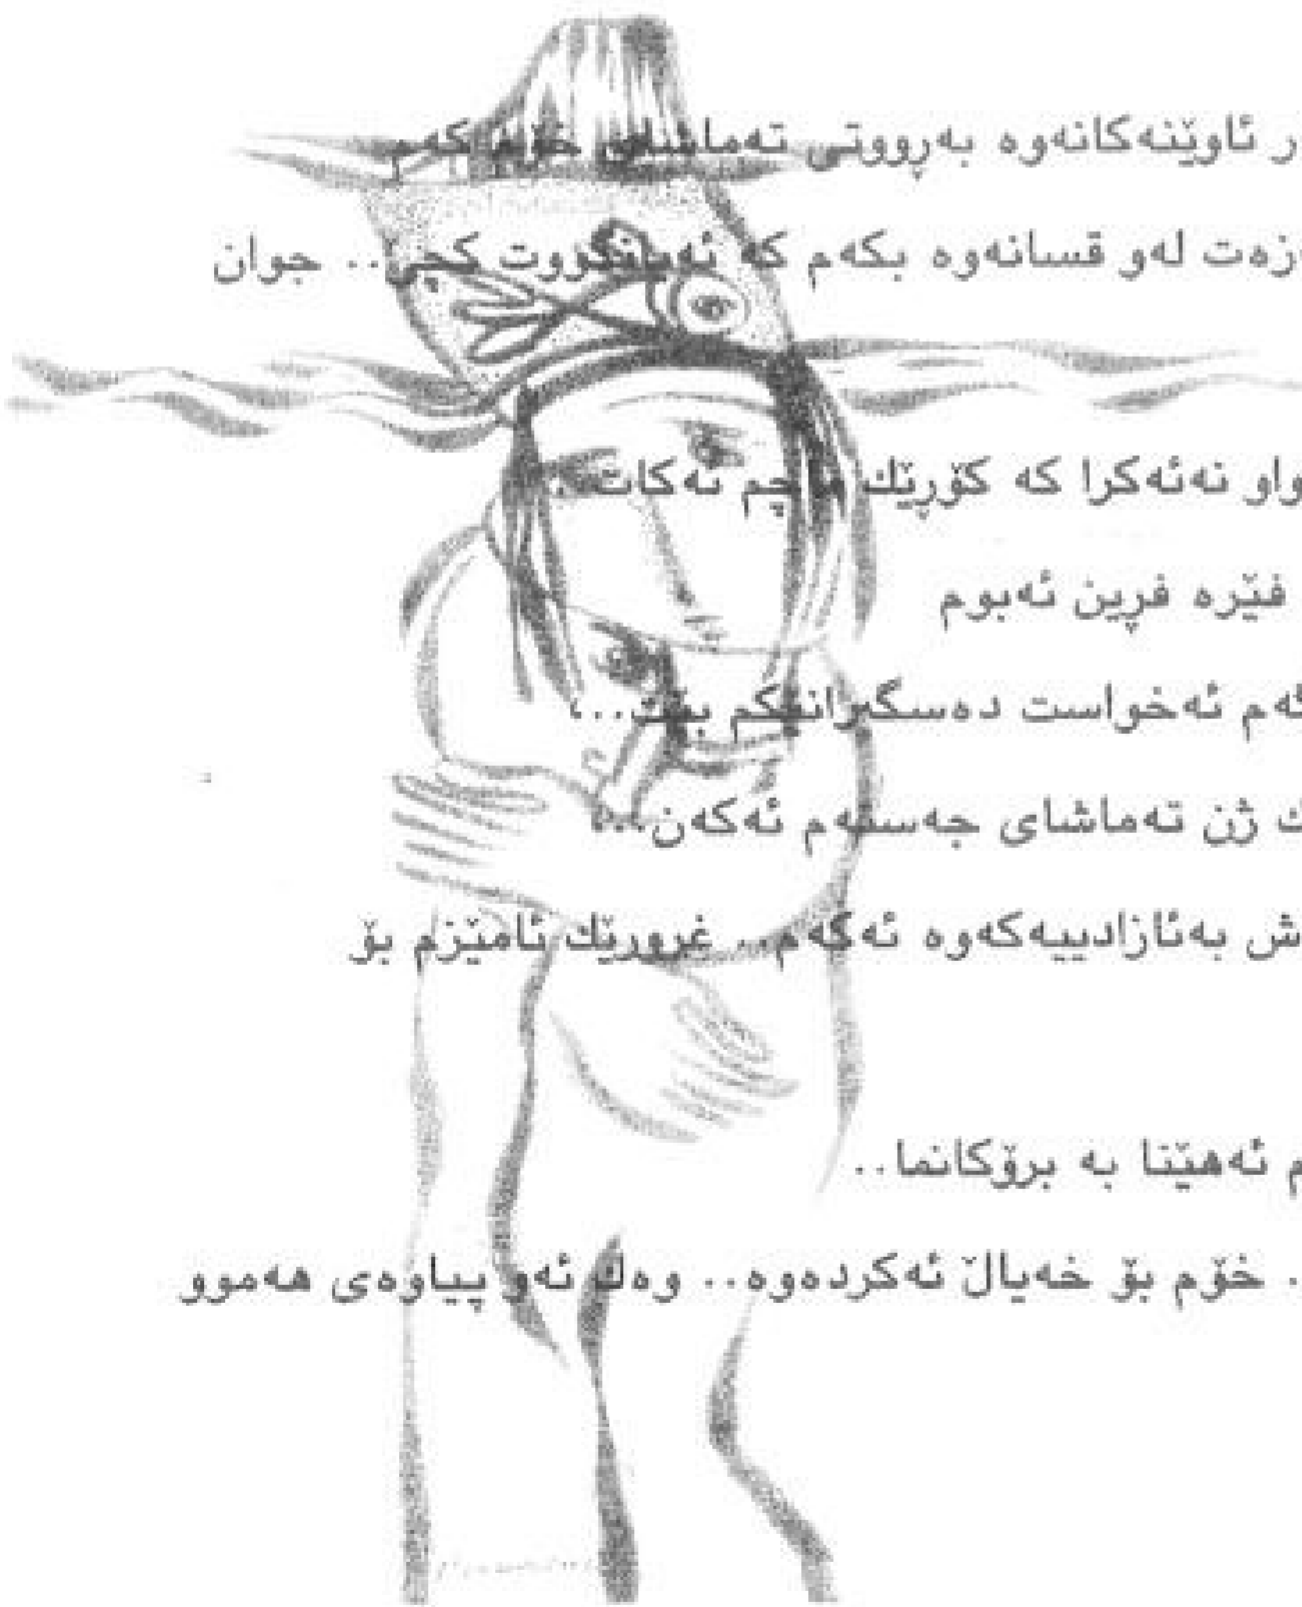 ر ئاوێنەکانەوە بەڕووتی تەماشای خۆم ئەکەم
زەت لەو قسانەوە بکەم کە ئەیانگووت کچێ.. جوان
واو نەئەکرا کە کۆڕێك ماچم ئەکات..
فێرە فڕین ئەبوم
ەم ئەخواست دەسگیرانێکم ببێت...
ك ژن تەماشای جەستەم ئەکەن...
ش بەئازادییەکەوە ئەکەم.. غرورێك ئامێزم بۆ
م ئەهێنا بە برۆکانما..
. خۆم بۆ خەیاڵ ئەکردەوە.. وەك ئەو پیاوەی هەموو